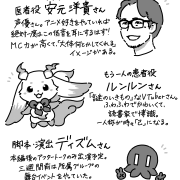 医者役 安元 洋貴さん
声優さん。アニメ好きをやっていれば
絶対一度はこの低音を耳にするはず!
MC力が高くて、「大体何とかしてくれる」
イメージがある。
もう一人の患者役
ルンルンさん
「謎のいきもの」なVTuberさん。
ふわふわでかわいくて、
読書家で博識。
一人称が時々「己」になる。
脚本・演出 ディズムさん
本編後のアフタートークの出演予定。
三週間前は所属グループの
舞台イベントをやっていた。